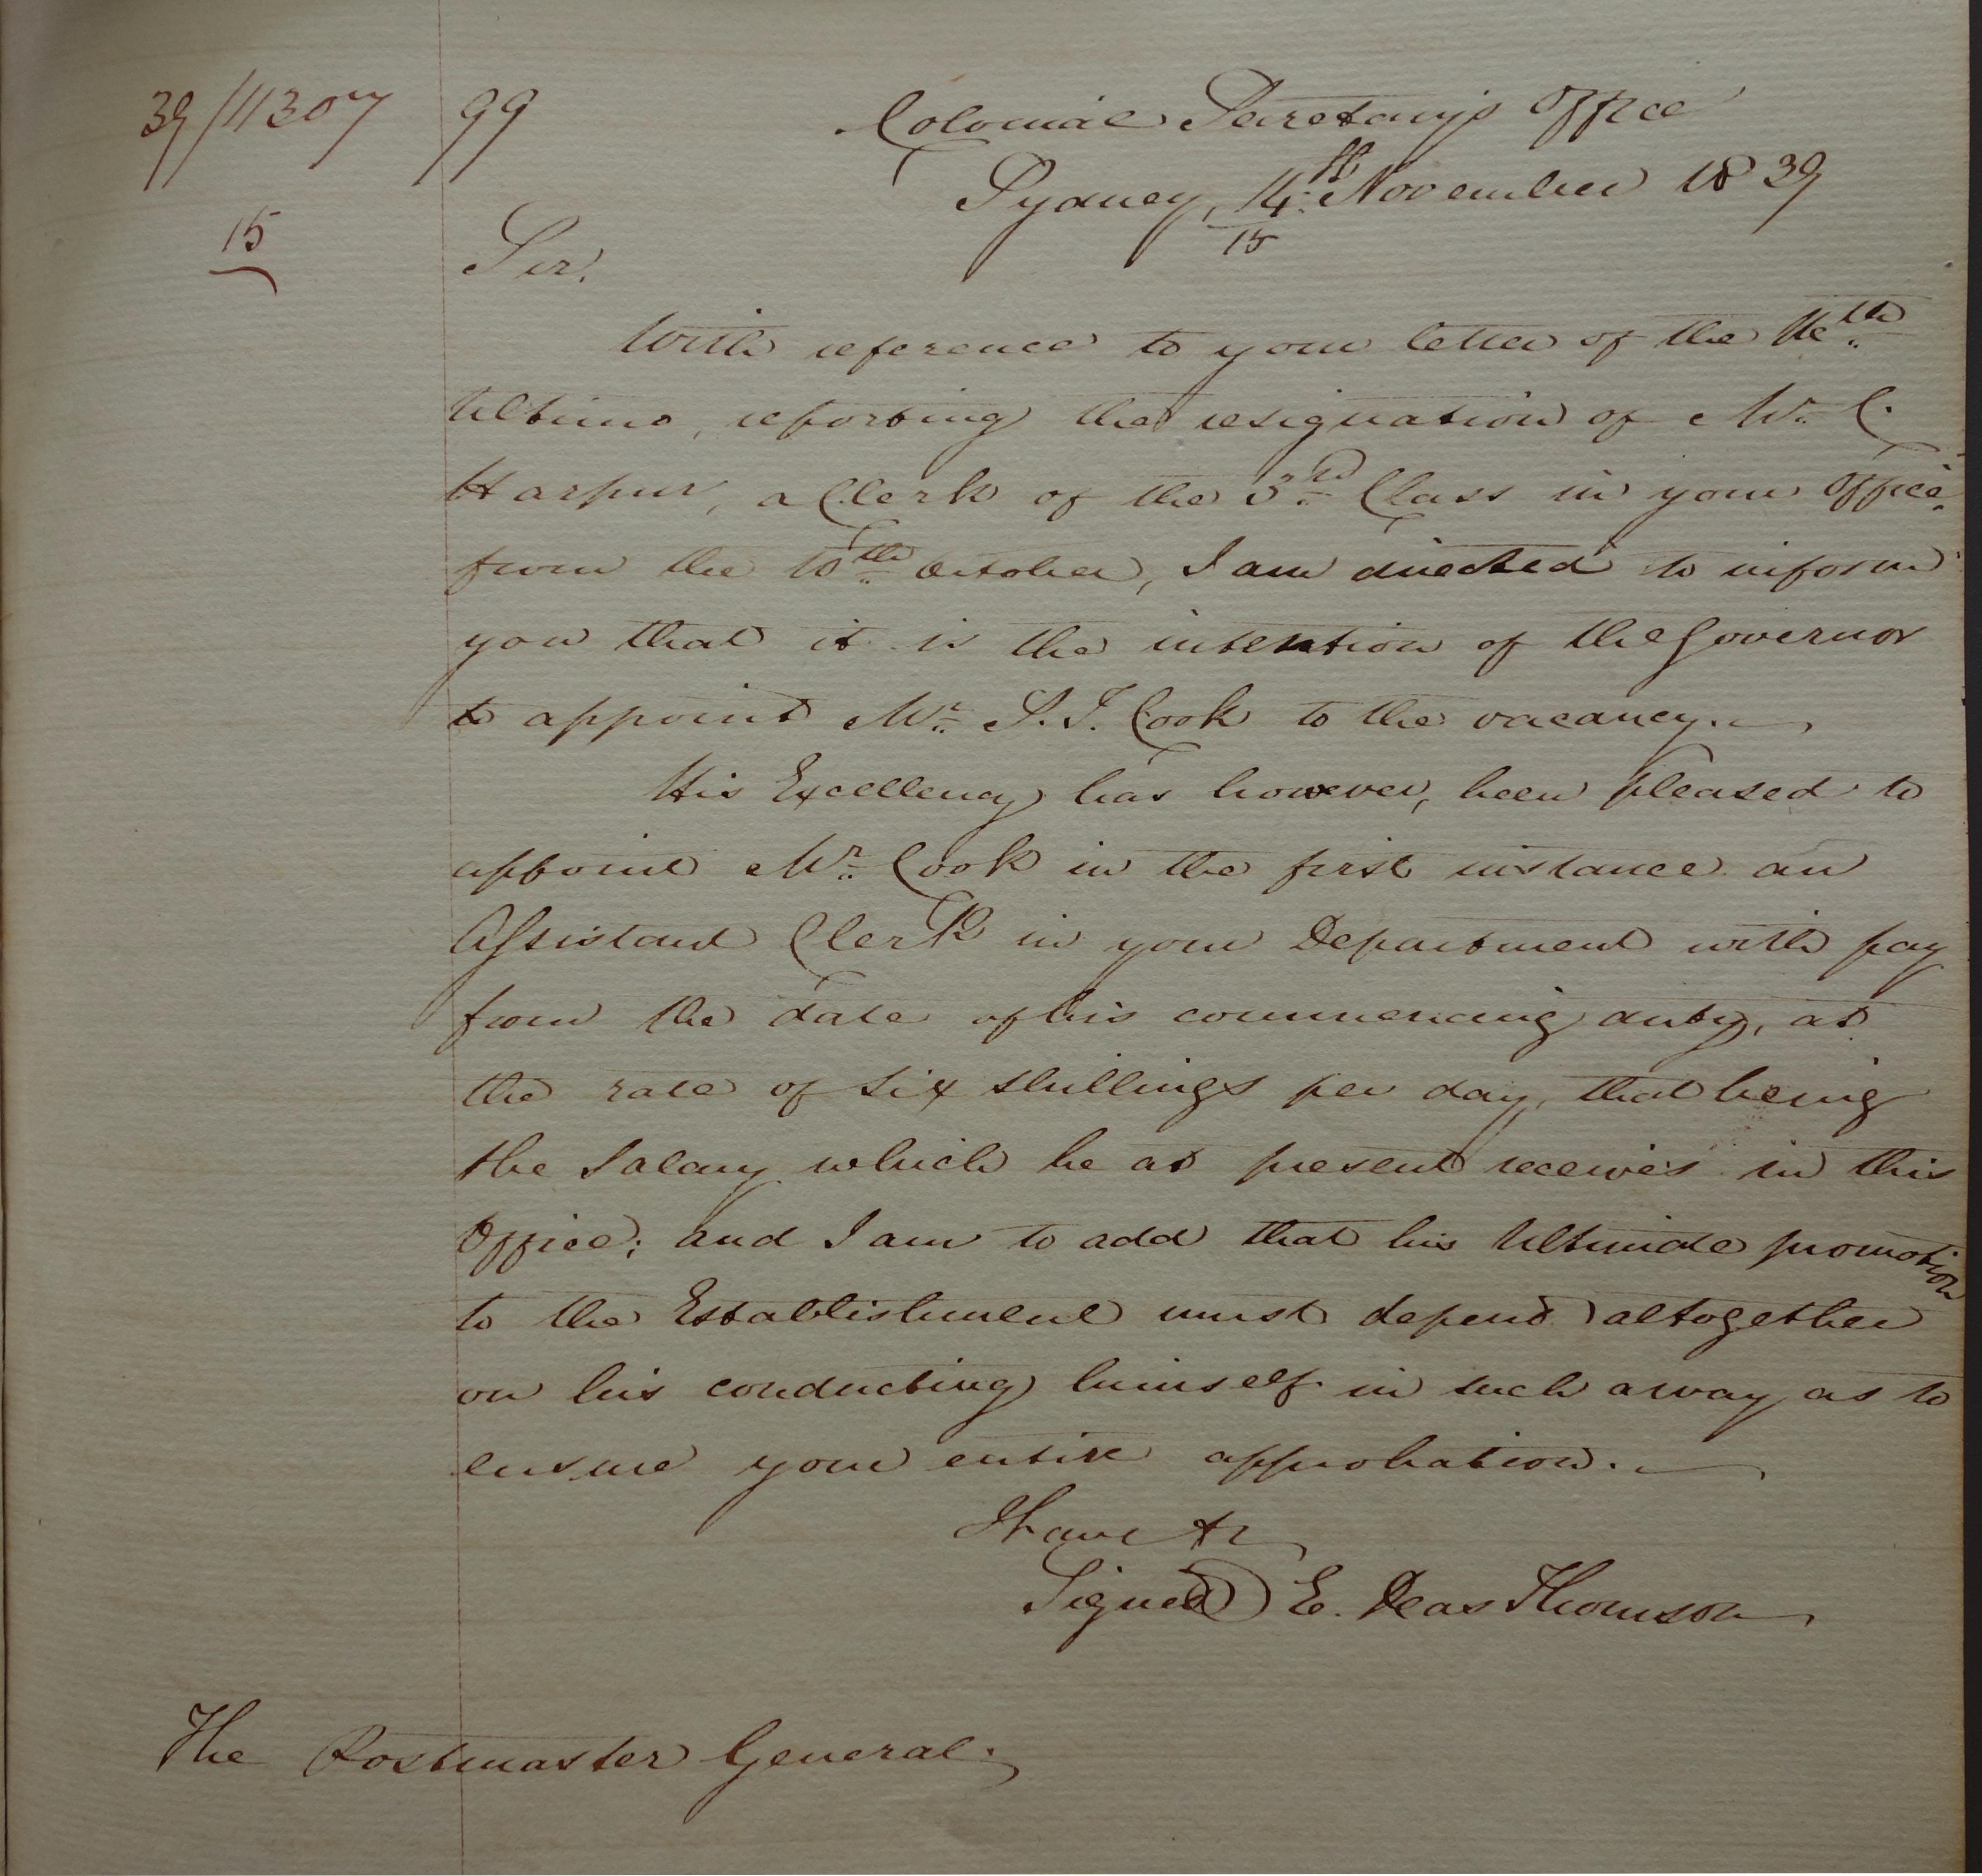 39/11307 99 Colonial Secretary's Office
Sydney, 14th November 1839
15 15
Sir,
With reference to your letter of the 16th
Ultimo, reporting the resignation of Mr. C.
Harpur, a Clerk of the 3rd Class in your Office
from the 10th October, I am directed to inform
you that it is the intention of the Governor
to appoint Mr. S. J. Cook to the vacancy.
His Excellency has however, been pleased to
appoint Mr. Cook in the first instance an
Assistant Clerk in your Department with pay
from the date of his commencing duty, at
the rate of six shillings per day, that being
the Salary which he at present receives in this
Office; and I am to add that his Ultimate promotion
to the Establishment must depend altogether
on his conducting himself in such a way as to
ensure your entire approbation.
I have &c
Signed) E. Deas Thomson
The Postmaster General.